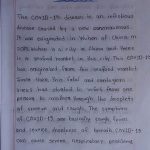 The COVID-19 disease is an infectious
disease caused by a new coronavirus.
It was originated in Wuhan of China in
2019. Wuhan is a city in China and there
is a seafood market in this city. This COVID-19
has originated from this seafood market.
Since then this fatal and contagious
virus has started to infect from one
person to another through the droplets
of sneeze and cough. The symptoms
of COVID-19 are fever, dry cough
and severe
can cause severe respiratory problems